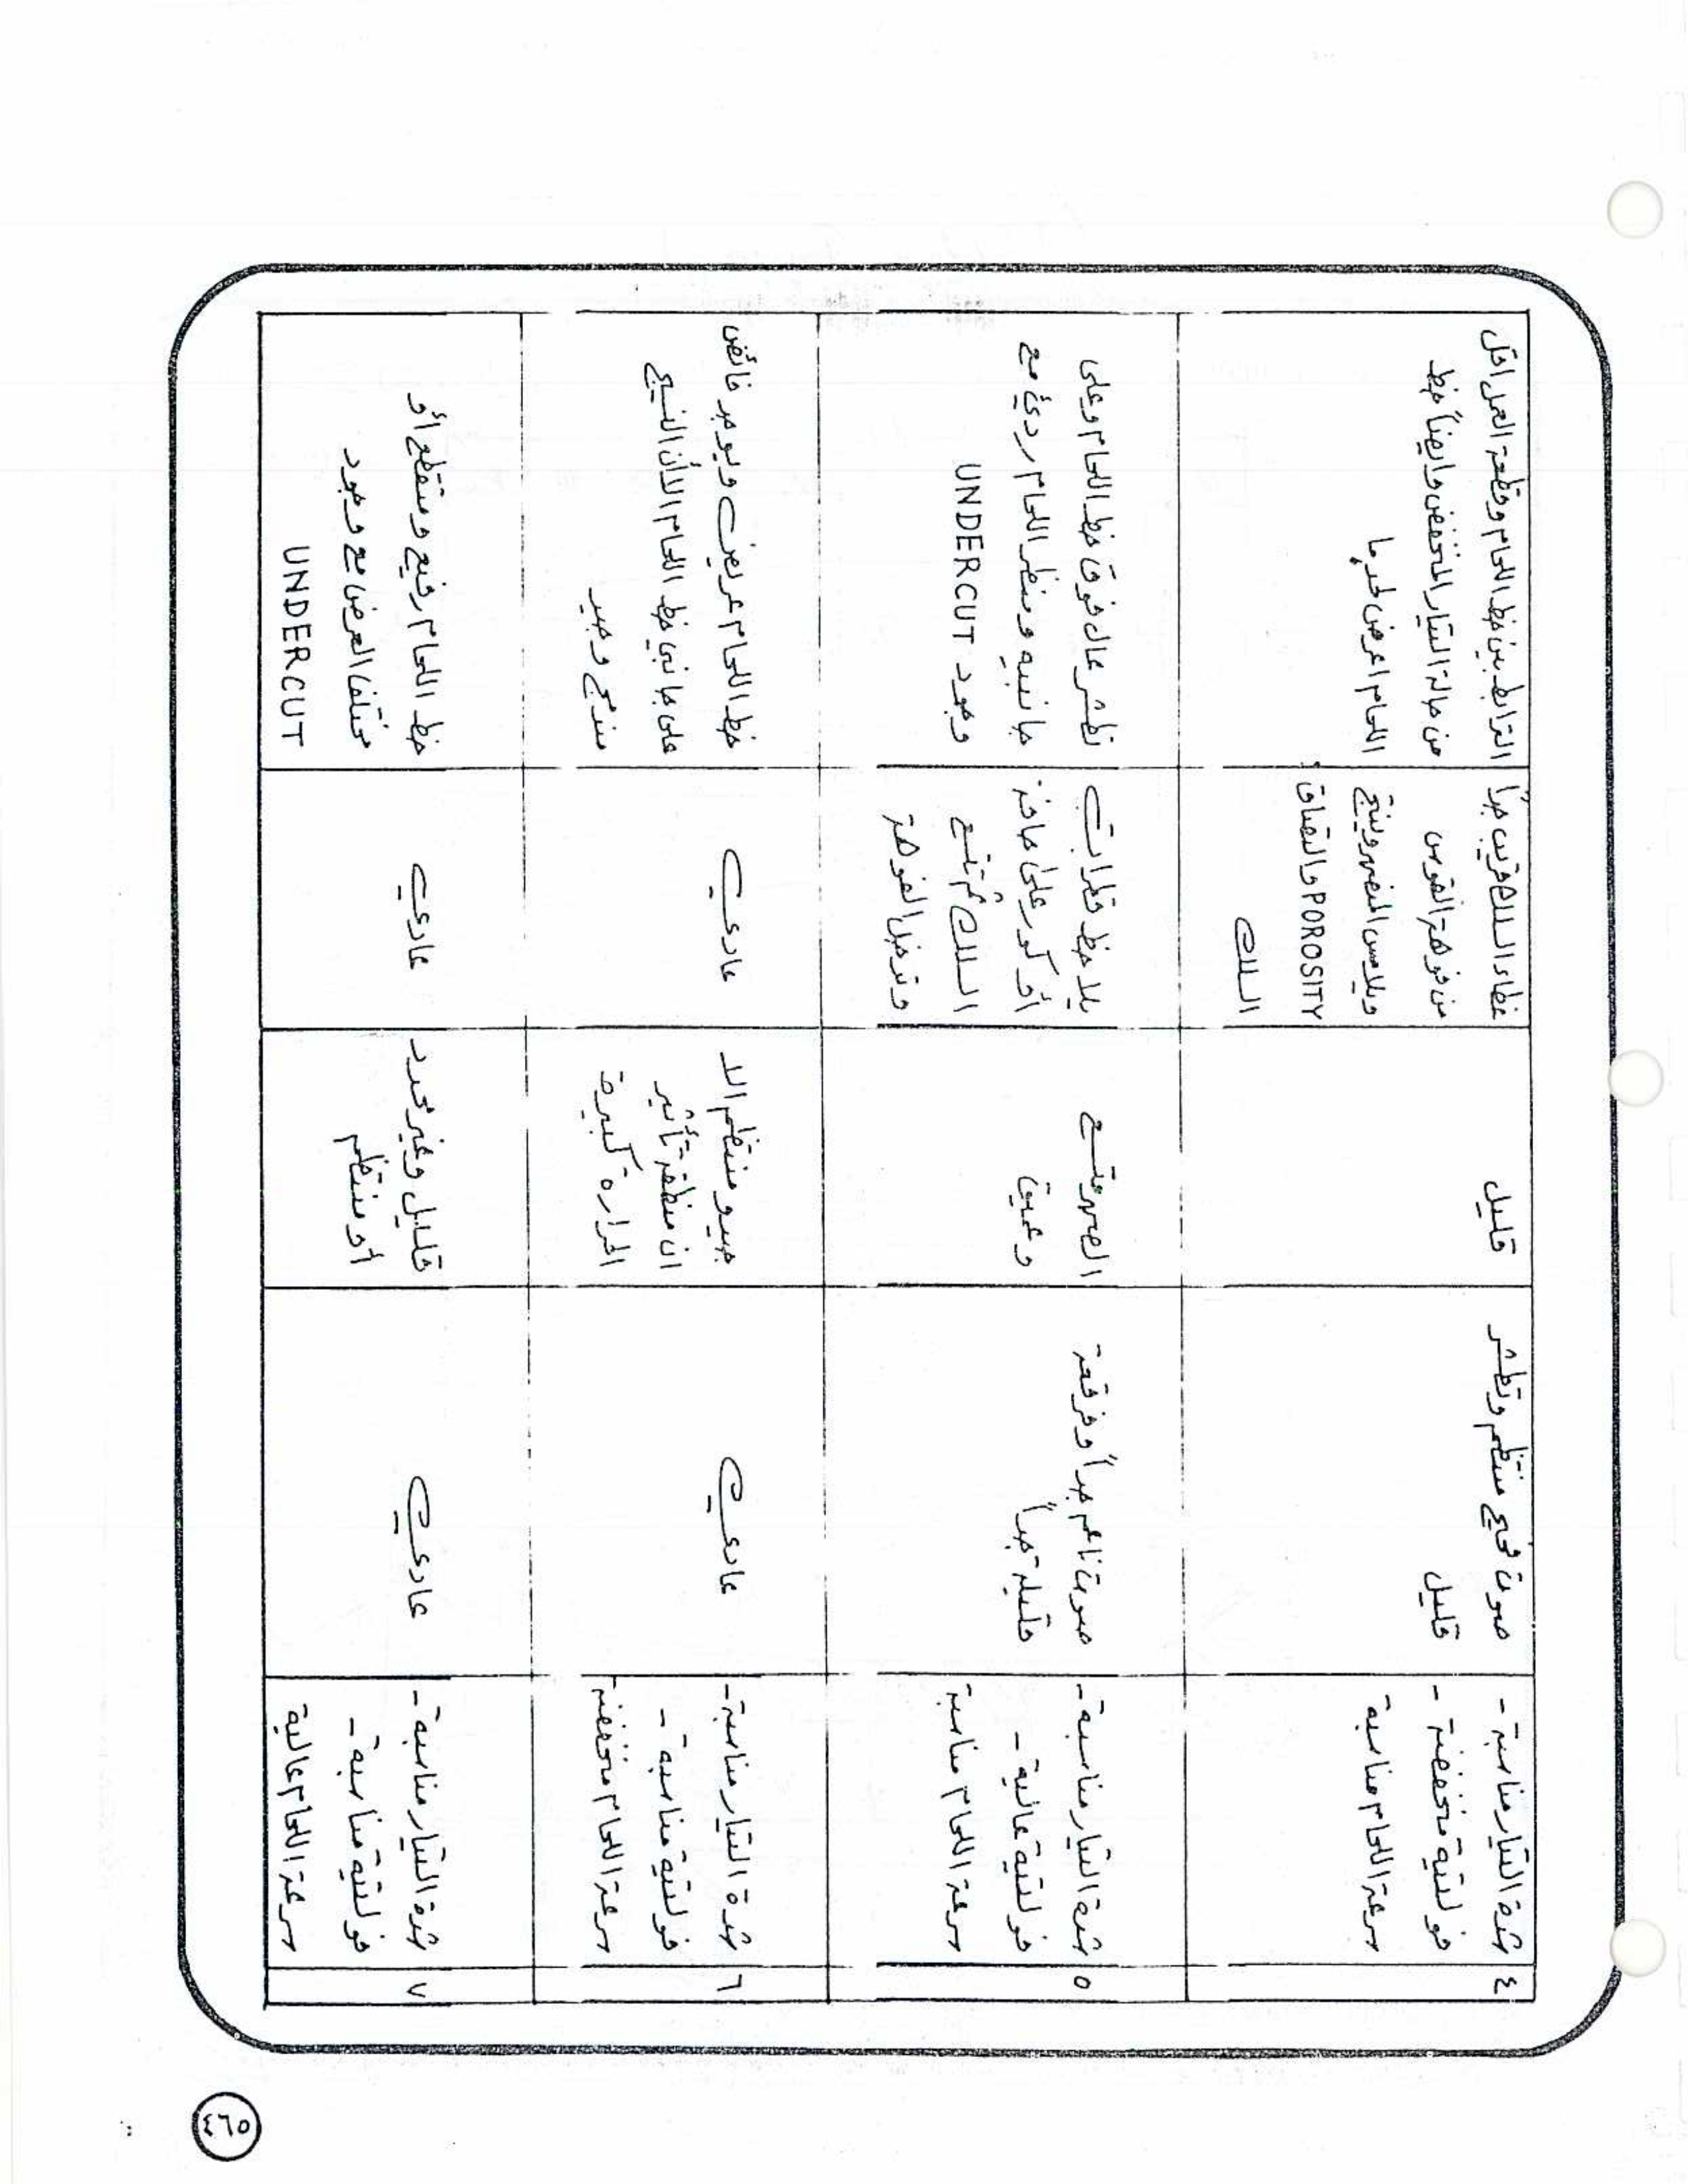 ٤
شدة التيار مناسبة -
فولتية منخفضة -
سرعة اللحام مناسبة
صوت فحيح منتظم وتطشر
قليل
قليل
غطاء السلك قريب جداً
من فوهة القوس
ويلامس المنصهر وينتج
POROSITY والتصاق
السلك
الترابط بين خط اللحام وقطعة العمل اقل
من حالة التيار المنخفض وايضاً خط
اللحام اعرض لحد ما
٥
شدة التيار مناسبة -
فولتية عالية -
سرعة اللحام مناسبة
صوت ناعم جداً وفرقعة
قليلة جداً
الصهر متسع
وعميق
يلاحظ قطرات
أو كور على حافة
السلك ثم تتسع
وتدخل الفوهة
تطشر عال فوق خط اللحام وعلى
جانبيه ومنظر اللحام ردئ مع
وجود UNDERCUT
٦
شدة التيار مناسبة -
فولتية مناسبة -
سرعة اللحام منخفضة
عادي
جيد ومنتظم الا
ان منطقة تأثير
الحرارة كبيرة
عادي
خط اللحام عريض ويوجد فائض
على جانبي خط اللحام الا أن النسيج
مندمج وجيد
٧
شدة التيار مناسبة -
فولتية مناسبة -
سرعة اللحام عالية
عادي
قليل وغير محدد
أو منتظم
عادي
خط اللحام رفيع ومتقطع أو
مختلف العرض مع وجود
UNDERCUT
٤٦٥